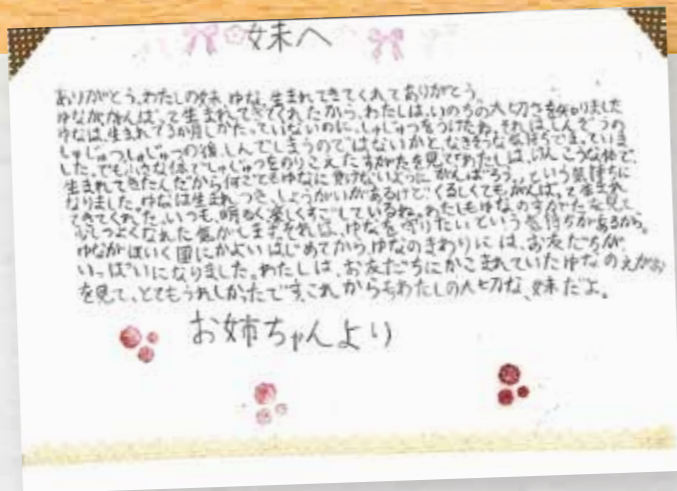 妹へ
ありがとう、わたしの妹、ゆな。生まれてきてくれてありがとう。
ゆながんばって生まれてきてくれたから、わたしは、いのちの大切さを知りました
ゆなは、生まれて3か月しかたっていないのに、しゅじゅつをうけたね。それは、しんぞうの
しゅじゅつ。しゅじゅつの後、しんでしまうのではないかと、なきそうな気持ちでまっていま
した。でも小さな体でしゅじゅつをのりこえたすがたを見て、わたしは、けんこうな体で、
生まれてきたんだから何ごともゆなに負けないようにがんばろう。という気持ちに
なりました。ゆなは生まれつき、しょうがいがあるけど、くるしくてもがんばって生まれ
てきてくれた。いつも、明るく楽しくすごしているね。わたしもゆなのすがたを見て
心つよくなれた気がします。それは、ゆなを守りたいという気持ちがあるから。
ゆながほいく園にかよいはじめてから、ゆなのまわりには、お友だちが、
いっぱいになりました。わたしは、お友だちにかこまれていたゆなのえがお
を見て、とてもうれしかったです。これからもわたしの大切な、妹だよ。
お姉ちゃんより